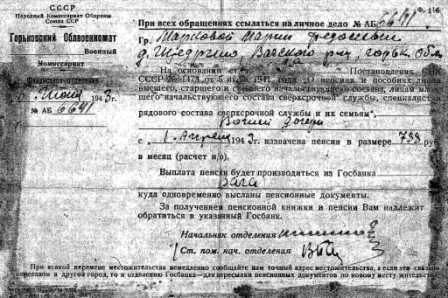 СССР
Народный Комиссариат Обороны
Союза ССР
Горьковский Облвоенкомат
Военный
Комиссариат
Июня 1943г.
№ АБ 6641
При всех обращениях ссылаться на личное дело № АБ 6641
Гр. Марковой Марии
д. Вачского р-на, Горьк. Обл.
На основании Постановления
СССР № 5 июня 1941 года „О пенсиях и пособиях
высшего, старшего и начальствующего состава, лицам
шего начальствующего состава сверхсрочной службы, специалист
рядового состава сверхсрочной службы и их семьям",
с 1 Апреля 1943г. назначена пенсия в размере
в месяц (расчет н/о).
Выплата пенсии будет производиться из Госбанка
Вача
куда одновременно высланы пенсионные документы.
За получением пенсионной книжки и пенсии Вам надлежит
обратиться в указанный Госбанк.
Начальник отделения
(Ст. пом. нач. отделения
При всякой перемене местожительства немедленно сообщайте нам точный адрес местожительства, а если это связано
переездом в другой город, то и отделению Госбанка—для пересылки пенсионных документов по новому месту жительства.